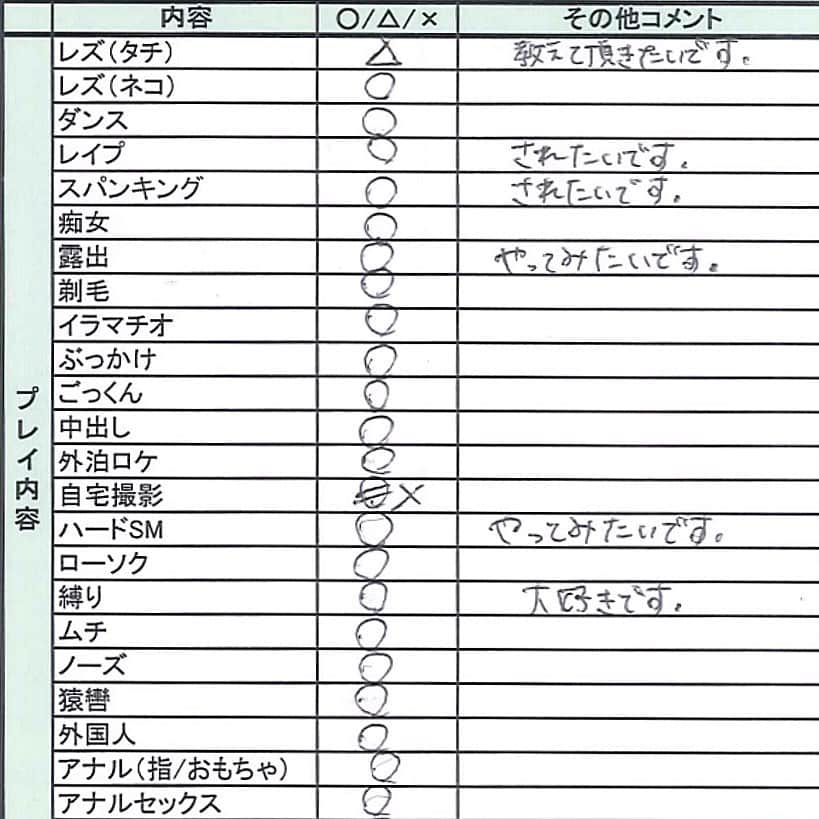 内容 ○/△/× その他コメント
プレイ内容
レズ(タチ) △ 教えて頂きたいです。
レズ(ネコ) ○
ダンス ○
レイプ ○ されたいです。
スパンキング ○ されたいです。
痴女 ○
露出 ○ やってみたいです。
剃毛 ○
イラマチオ ○
ぶっかけ ○
ごっくん ○
中出し ○
外泊ロケ ○
自宅撮影 ×
ハードSM ○ やってみたいです。
ローソク ○
縛り ○ 大好きです。
ムチ ○
ノーズ ○
猿轡 ○
外国人 ○
アナル(指/おもちゃ) ○
アナルセックス ○